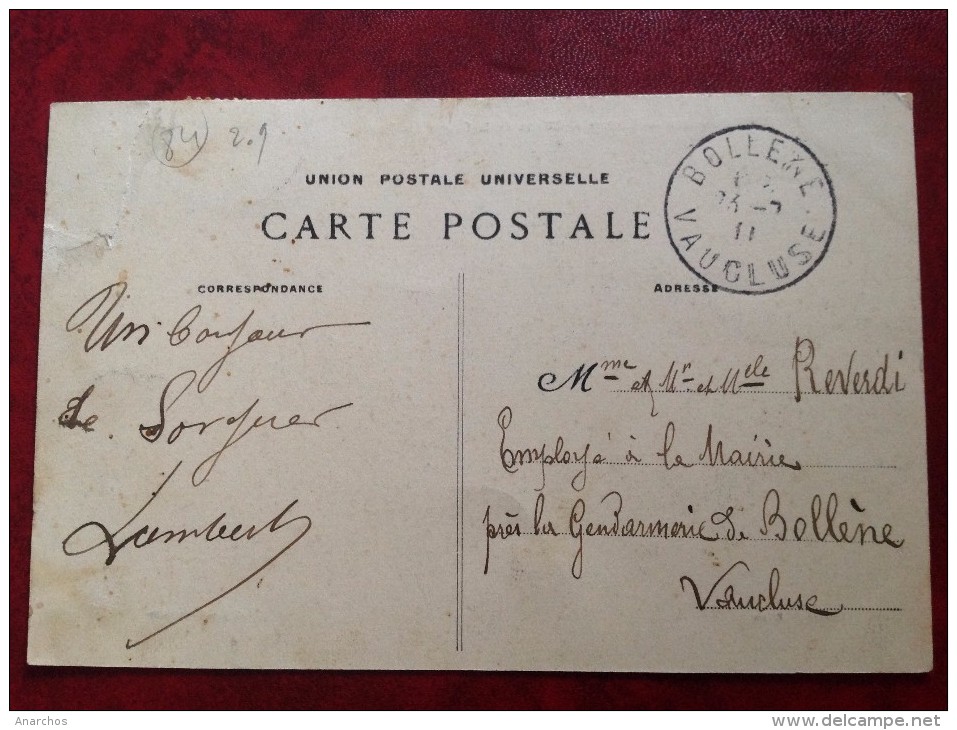 (84) 2.9
UNION POSTALE UNIVERSELLE
CARTE POSTALE
BOLLENE
23 -7
11
VAUCLUSE
CORRESPONDANCE
Un bonjour
de Sorgues
Lambert
ADRESSE
Mme et Mr et Melle Reverdi
Employé à la Mairie
près la Gendarmerie de Bollène
Vaucluse
Anarchos
www.delcampe.net